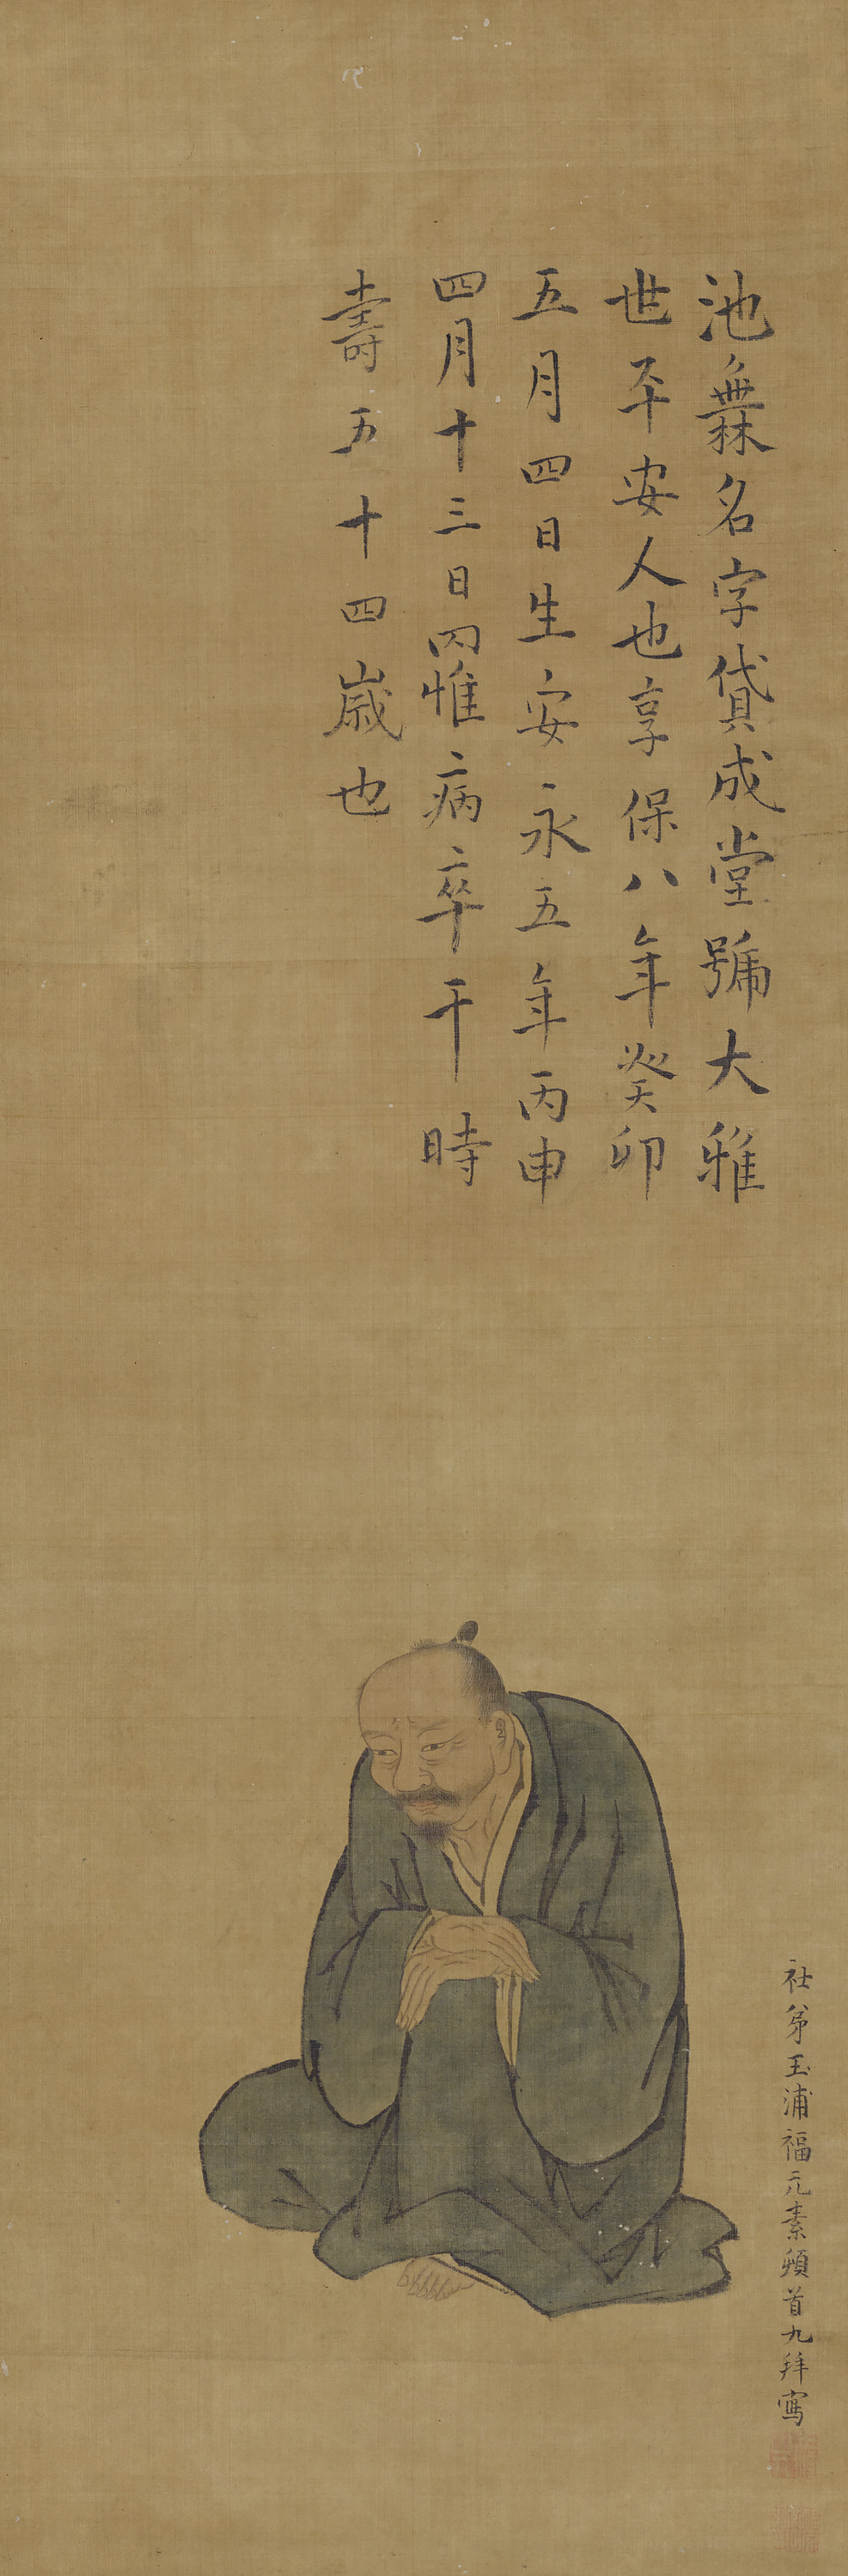 池無名字貸成堂號大雅
世平安人也享保八年癸卯
五月四日生安永五年丙申
四月十三日因惟病卒干時
壽五十四歳也
社弟玉浦福元素頓首九拜寫